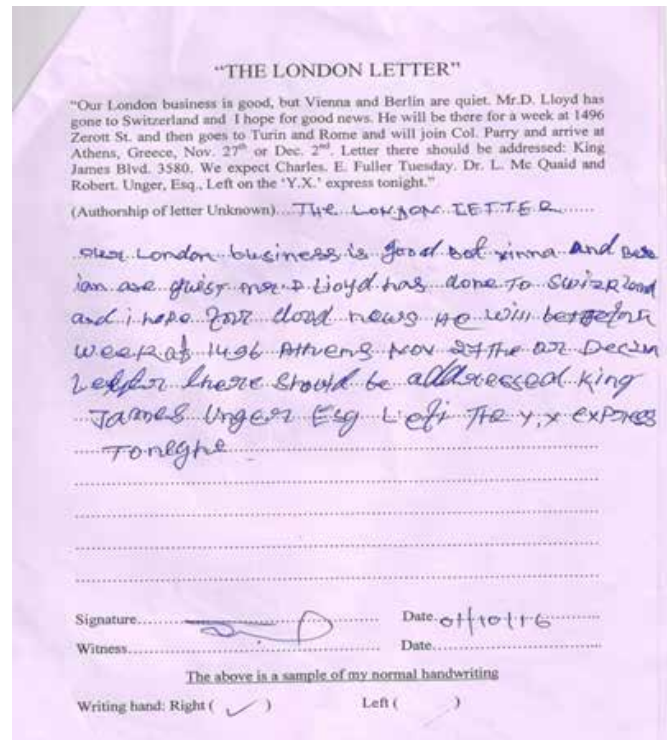 "THE LONDON LETTER"
"Our London business is good, but Vienna and Berlin are quiet. Mr.D. Lloyd has
gone to Switzerland and I hope for good news. He will be there for a week at 1496
Zerott St. and then goes to Turin and Rome and will join Col. Parry and arrive at
Athens, Greece, Nov. 27th or Dec. 2nd. Letter there should be addressed: King
James Blvd. 3580. We expect Charles. E. Fuller Tuesday. Dr. L. Mc Quaid and
Robert. Unger, Esq., Left on the 'Y.X.' express tonight."
(Authorship of letter Unknown)....THE LONDON LETTER......
our London business is good bot vinna And Ber
ian are quist mr D Lioyd has done To Swizerland
and i hope for dood news He will
week at 1496 Athens Nov 27 the or Decin
Letter there should be addressed King
James Unger Esq Left The Y,X express
Toneghe
Signature.......... Date 01/10/16
Witness.......... Date..........
The above is a sample of my normal handwriting
Writing hand: Right ( ✓ ) Left ( )